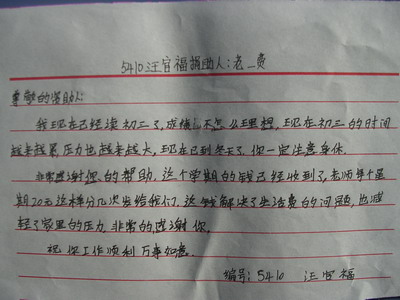 5410汪官福捐助人:老_费
尊敬的资助人:
我现在已经读初三了,成绩不怎么理想,现在初三的时间
越来越累,压力也越来越大,现在已到冬天了.你一定注意身体.
非常感谢您的帮助,这个学期的钱已经收到了,老师每个星
期20元这样分几次发给我们.这钱解决了生活费的问题,也减
轻了家里的压力.非常的感谢你.
祝你工作顺利万事如意.
编号:5410 汪官福